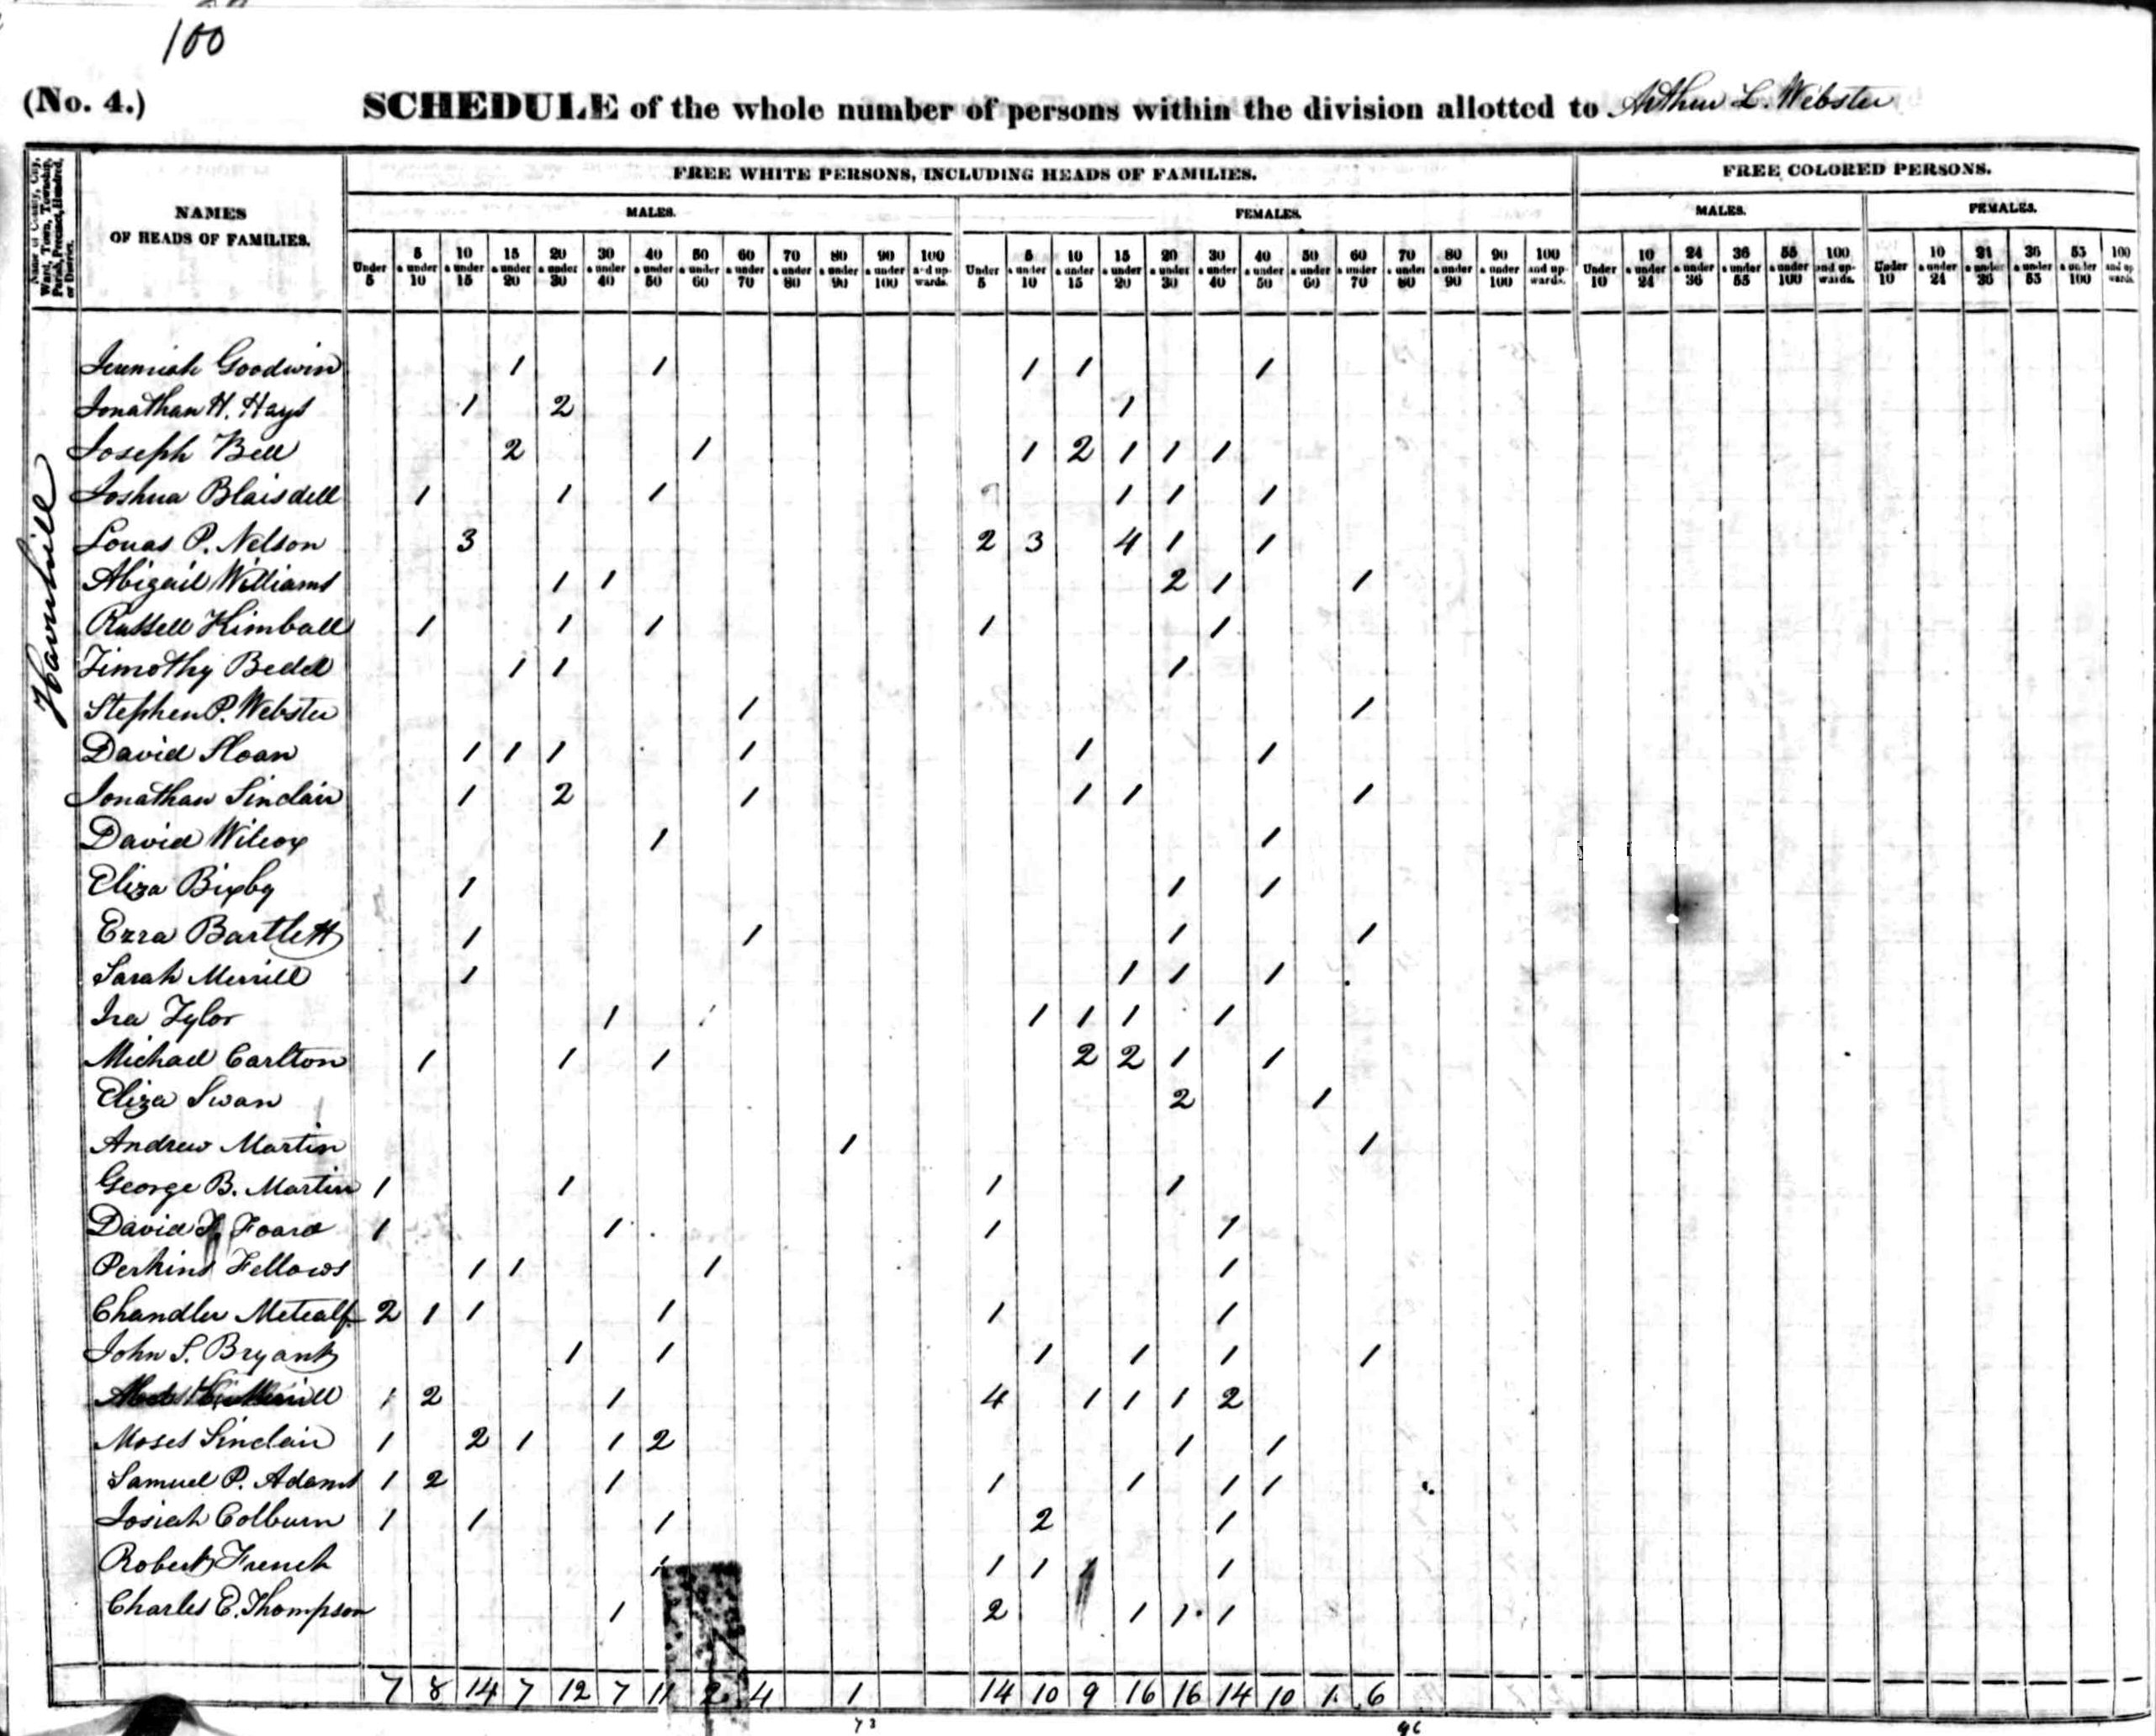 100
(No. 4.) SCHEDULE of the whole number of persons within the division allotted to Arthur L. Webster
Name of County, City, Ward, Town, Township, Parish, Precinct, Hundred, or District.
NAMES
OF HEADS OF FAMILIES.
FREE WHITE PERSONS, INCLUDING HEADS OF FAMILIES.
FREE COLORED PERSONS.
MALES. FEMALES. MALES. FEMALES.
Under 5 5 & under 10 10 & under 15 15 & under 20 20 & under 30 30 & under 40 40 & under 50 50 & under 60 60 & under 70 70 & under 80 80 & under 90 90 & under 100 100 and upwards.
Under 5 5 & under 10 10 & under 15 15 & under 20 20 & under 30 30 & under 40 40 & under 50 50 & under 60 60 & under 70 70 & under 80 80 & under 90 90 & under 100 100 and upwards.
Under 10 10 & under 24 24 & under 36 36 & under 55 55 & under 100 100 and upwards.
Under 10 10 & under 24 24 & under 36 36 & under 55 55 & under 100 100 and upwards.
Haverhill
Jeremiah Goodwin 1 1 1 1 1
Jonathan H. Hays 1 2 1
Joseph Bell 2 1 1 2 1 1 1
Joshua Blaisdell 1 1 1 1 1 1
P. Nelson 3 2 3 4 1 1
Abigail Williams 1 1 2 1 1
Russell Kimball 1 1 1 1 1
Timothy Bedel 1 1 1
Stephen P. Webster 1 1
David Sloan 1 1 1 1 1 1
Jonathan Sinclair 1 2 1 1 1 1
David Wilcox 1 1
Eliza Bixby 1 1 1
Ezra Bartlett 1 1 1 1
Sarah Merrill 1 1 1 1
Ira Tylor 1 1 1 1 1
Michael Carlton 1 1 1 2 2 1 1
Eliza Swan 2 1
Andrew Martin 1 1
George B. Martin 1 1 1 1
David Foard 1 1 1 1
Perkins Fellows 1 1 1 1
Chandler Metcalf 2 1 1 1 1 1
John S. Bryant 1 1 1 1 1 1
1 2 1 4 1 1 1 2
Moses Sinclair 1 2 1 1 2 1 1
Samuel P. Adams 1 2 1 1 1 1 1
Josiah Colburn 1 1 1 2 1
Robert French 1 1 1 1 1
Charles E. Thompson 1 2 1 1 1
7 8 14 7 12 7 11 2 4 1 14 10 9 16 16 14 10 1 6
73 96